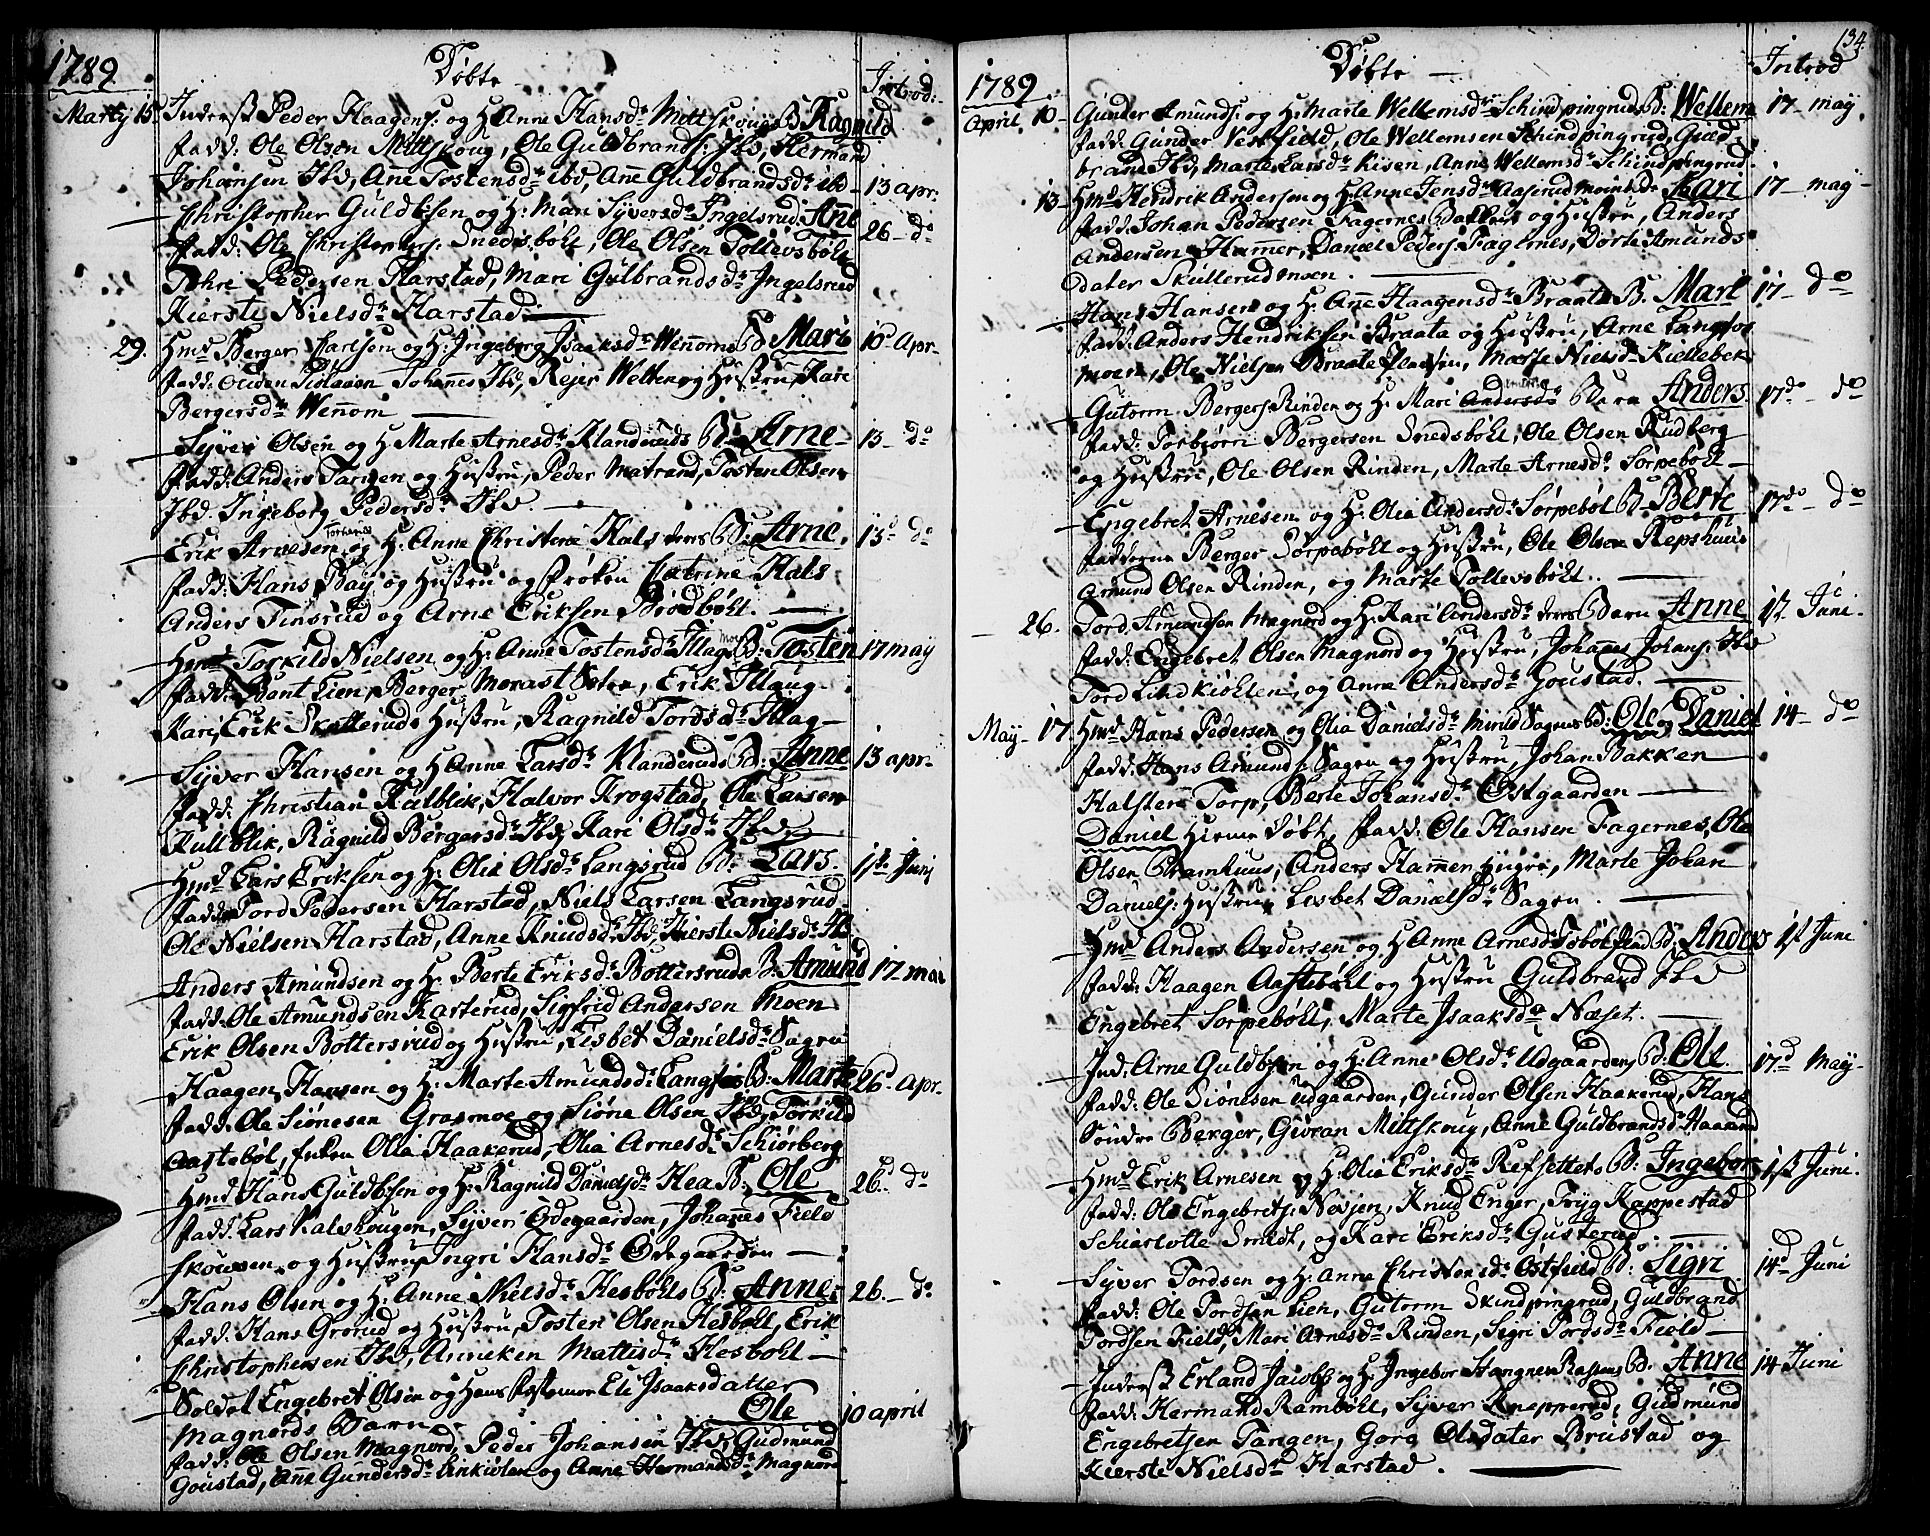 1789
Døbte
Introd:
Marty 15
Inderst Peder Haagens: og H: Anne Hansdr Mittskougs B: Ragnild
Fadd: Ole Olsen Mittskoug, Ole Guldbrands: Ibd, Hermand
Johansen Ibd, Anne Tostensdr ibd, Anne Guldbrandsdr ibd - 13 apr:
Christopher Guldbsen og H: Mari Syversdr Ingelsrud Anne 26 - do
Fadd: Ole Christophers: Snedsbøhl, Ole Olsen Tollevsbøhl
Tohre Pedersen Harstad, Mari Gulbrandsdr Ingelsrud
Kierste Nielsdr Harstad.
29. Hmd Berger Carlsen og H: Ingeborg Isaaksdr Wennoms B Mari 10 Apr.
Fadd: Johannes Ibd, Rejer Welten og Hustru, Kari
Bergersdr Wennom
Syver Olsen og H: Marte Arnesdr Klanderuds B: Arne 13 - do
Fadd: Anders Tangen og Hustru, Peder Matrand, Tosten Olsen
Ibd. Ingeborg Pedersdr Ibd.
Erik Arnesen og H: Anne Christene Hals deres B: Arne. 13 do
Fadd: Hans Bay og Hustru og frøken Catrine Hals
Anders Tinsrud og Arne Eriksen Brødbøhl.
Hmd Torkild Nielsen og H: Anne Tostensdr Illag Moe B: Tosten 17 may
Fadd: Bent Lien, Berger Morast Seter, Erik Illaug
Kari, Erik Skulleruds Hustru, Ragnild Tordsdr Illag
Syver Hansen og H Anne Larsdr Klanderuds B: Anne 13 apr.
Fadd: Christian Kulblik, Halvor Krogstad, Ole Larsen
Kullblik, Ragnild Bergersdr Ibd, Kari Olsdr Ibd
Hmd Lars Eriksen og H: Olia Olsdr Langsrud B: Lars 1st Junj
Fadd: Tord Pedersen Harstad, Niels Larsen Langsrud
Ole Nielsen Harstad, Anne Knudsdr Ibd, Kierste Nielsdr Ib
Anders Amundsen og H: Berte Eriksdr Bottersruds B. Amund 17 mai
Fadd: Ole Amundsen Karterud, Sigfrid Andersen Moen
Erik Olsen Bottersrud og Hustru, Lisbet Danielsdr Sagen
Haagen Hansen og H: Marte Amundsdr Langfos B: Marte 26 Apr.
Fadd: Ole Siønesen Grasmoe og Siøne Olsen Ibd, Torkild
Aastebøl, Enken Olia Haakerud, Olia Arnesdr Schiørberg
Hmd Hans Guldbsen og H: Ragnild Danielsdr Hea B: Ole 26 do
Fadd: Lars Kalskougen, Syver Ødegaarden, Johannes Field
skougen og Hustru, Ingri Hansdr Ødegaarden
Hans Olsen og H: Anne Nielsdr Hesbøhls B: Anne 26. - do
Fadd: Hans Grorud og Hustru, Tosten Olsen Hesbøhl, Erik
Christophersen Ibd, Anneken Mattisdr Hesbøhl
Soldat Engebret Olsen og Hans Eli Isaaksdatter
Magnords Barn Ole 10 april
Fadd: Ole Olsen Magnord, Peder Johansen Ibd, Gudmund
Goustad, Anne Gundersdr og Anne Hermandsdr Magnord
134
1789
Døbte
Introd
April 10 - Gunder Amunds: og H: Marte Wellemsdr Schindpingruds B: Wellem 17 - may
Fadd: Gunder Vestfield, Ole Wellemsen Schindpingrud, Guld-
brand Ibd, Marte Larsdr Kisen, Anne Wellemsdr Schindpingrud.
13 - Hmd Hendrik Andersen og H: Anne Jensdr Aaserud Kari 17 - may -
Fadd: Johan Pedersen Fagernes og Hustru, Anders
Andersen Hammer, Daniel Peders: Fagernes, Dorte Amunds
dater Skullerud moen.
Hans Hansen og H: Anne Haagensdr Braata B. Mari 17 - do
Fadd: Anders Hendriksen Braata og Hustru, Arne Langfos
moen, Ole Nielsen Braate Pladsen, Marte Nielsdr Kiellebek
Gutorm Bergers: Rinden og H: Mari Andersdr Barn Anders. 17do - do
Fadd: Torbiørn Bergersen Snedsbøhl, Ole Olsen Rudberg
og Hustru, Ole Olsen Rinden, Marte Arnesdr Sørpebøhl -
Engebret Arnesen og H: Olia Andersdr Sørpebøl B: Berte 17do - do
Fadderne Berger Sørpebøhl og Hustru, Ole Olsen Repshuus
Amund Olsen Rinden, og Marte Tollevsbøhl.
26. Tord Amundsen Magnord og H: Kari Andersdr deres Barn Anne 1st Juni.
Fadd: Engebret Olsen Magnord og Hustru, Johannes Johans: Ibd
Tord Lindkiøhlen, og Anne Andersdr Goustad.
May - 17. Hmd Hans Pedersen og Olia Danielsdr Sagens B: Ole og Daniel 14 - do
Fadd: Hans Amunds: Sagen og Hustru, Johan Bakken
Halsten Torp, Berte Johansdr Østgaarden
Daniel Hieme døbt, Fadd: Ole Hansen Fagernes, Ole
Olsen Bramhuus, Anders Hammer, Marte Johan
Daniels: Hustru, Lisbet Danielsdr Sagen.
Hmd Anders Andersen og H Anne Arnesdr B: Anders 1st June
Fadd: Haagen Aastebøhl og Hustru Guldbrand Ibd
Engebret Sørpebøhl, Marte Isaaksdr Næset.
Ind: Arne Guldbsen og H: Anne Olsdr Udgaardens B: Ole. 17d May
Fadd: Ole Siønesen Udgaarden, Gunder Olsen Haakerud, Hans
Søndre Berger, Giøran Mittskoug, Anne Guldbrandsd: Haaand
Hmd Erik Arnesen og H: Olia Eriksdr Refsettets B: Ingebor 1st Juni.
Fadd: Ole Engebrets: Nøvjen, Knud Enger, Tryg Kappestad
Schiarlotte Smidt, og Kari Eriksdr Gusterud.
Syver Tordsen og H: Anne Christensdr Østfield B: Sigri 14d Juni
Fadd: Ole Tordsen Lien, Gutorm Skindpingrud, Guldbrand
Tordsen Field, Mari Arnesdr Rinden, Sigri Tordsdr Field -
Inderst Erland Jacobs: og H: Ingebor Stangnes B: Anne 14 Juni
Fadd: Hermand Rambøhl, Syver Knapperud, Gudmund
Engebretsen Tangen, Goro Olsdater Brustad og
Kierste Nielsdr Harstad.